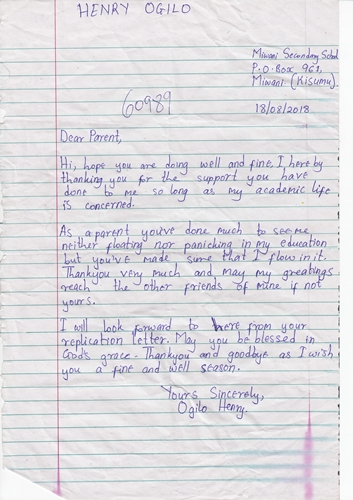 HENRY OGILO
Miwani Secondary School
P.O. Box 961,
Miwani (Kisumu)
60989
18/08/2018
Dear Parent,
Hi, hope you are doing well and fine, I here by
thanking you for the support you have
done to me so long as my academic life
is concerned.
As a parent you've done much to see me
neither floating nor panicking in my education
but you've made sure that I flow in it.
Thankyou very much and may my greatings
reach the other friends of mine if not
yours.
I will look forward to here from your
replication letter. May you be blessed in
God's grace. Thankyou and goodbye as I wish
you a fine and well season.
Yours Sincerely,
Ogilo Henry.